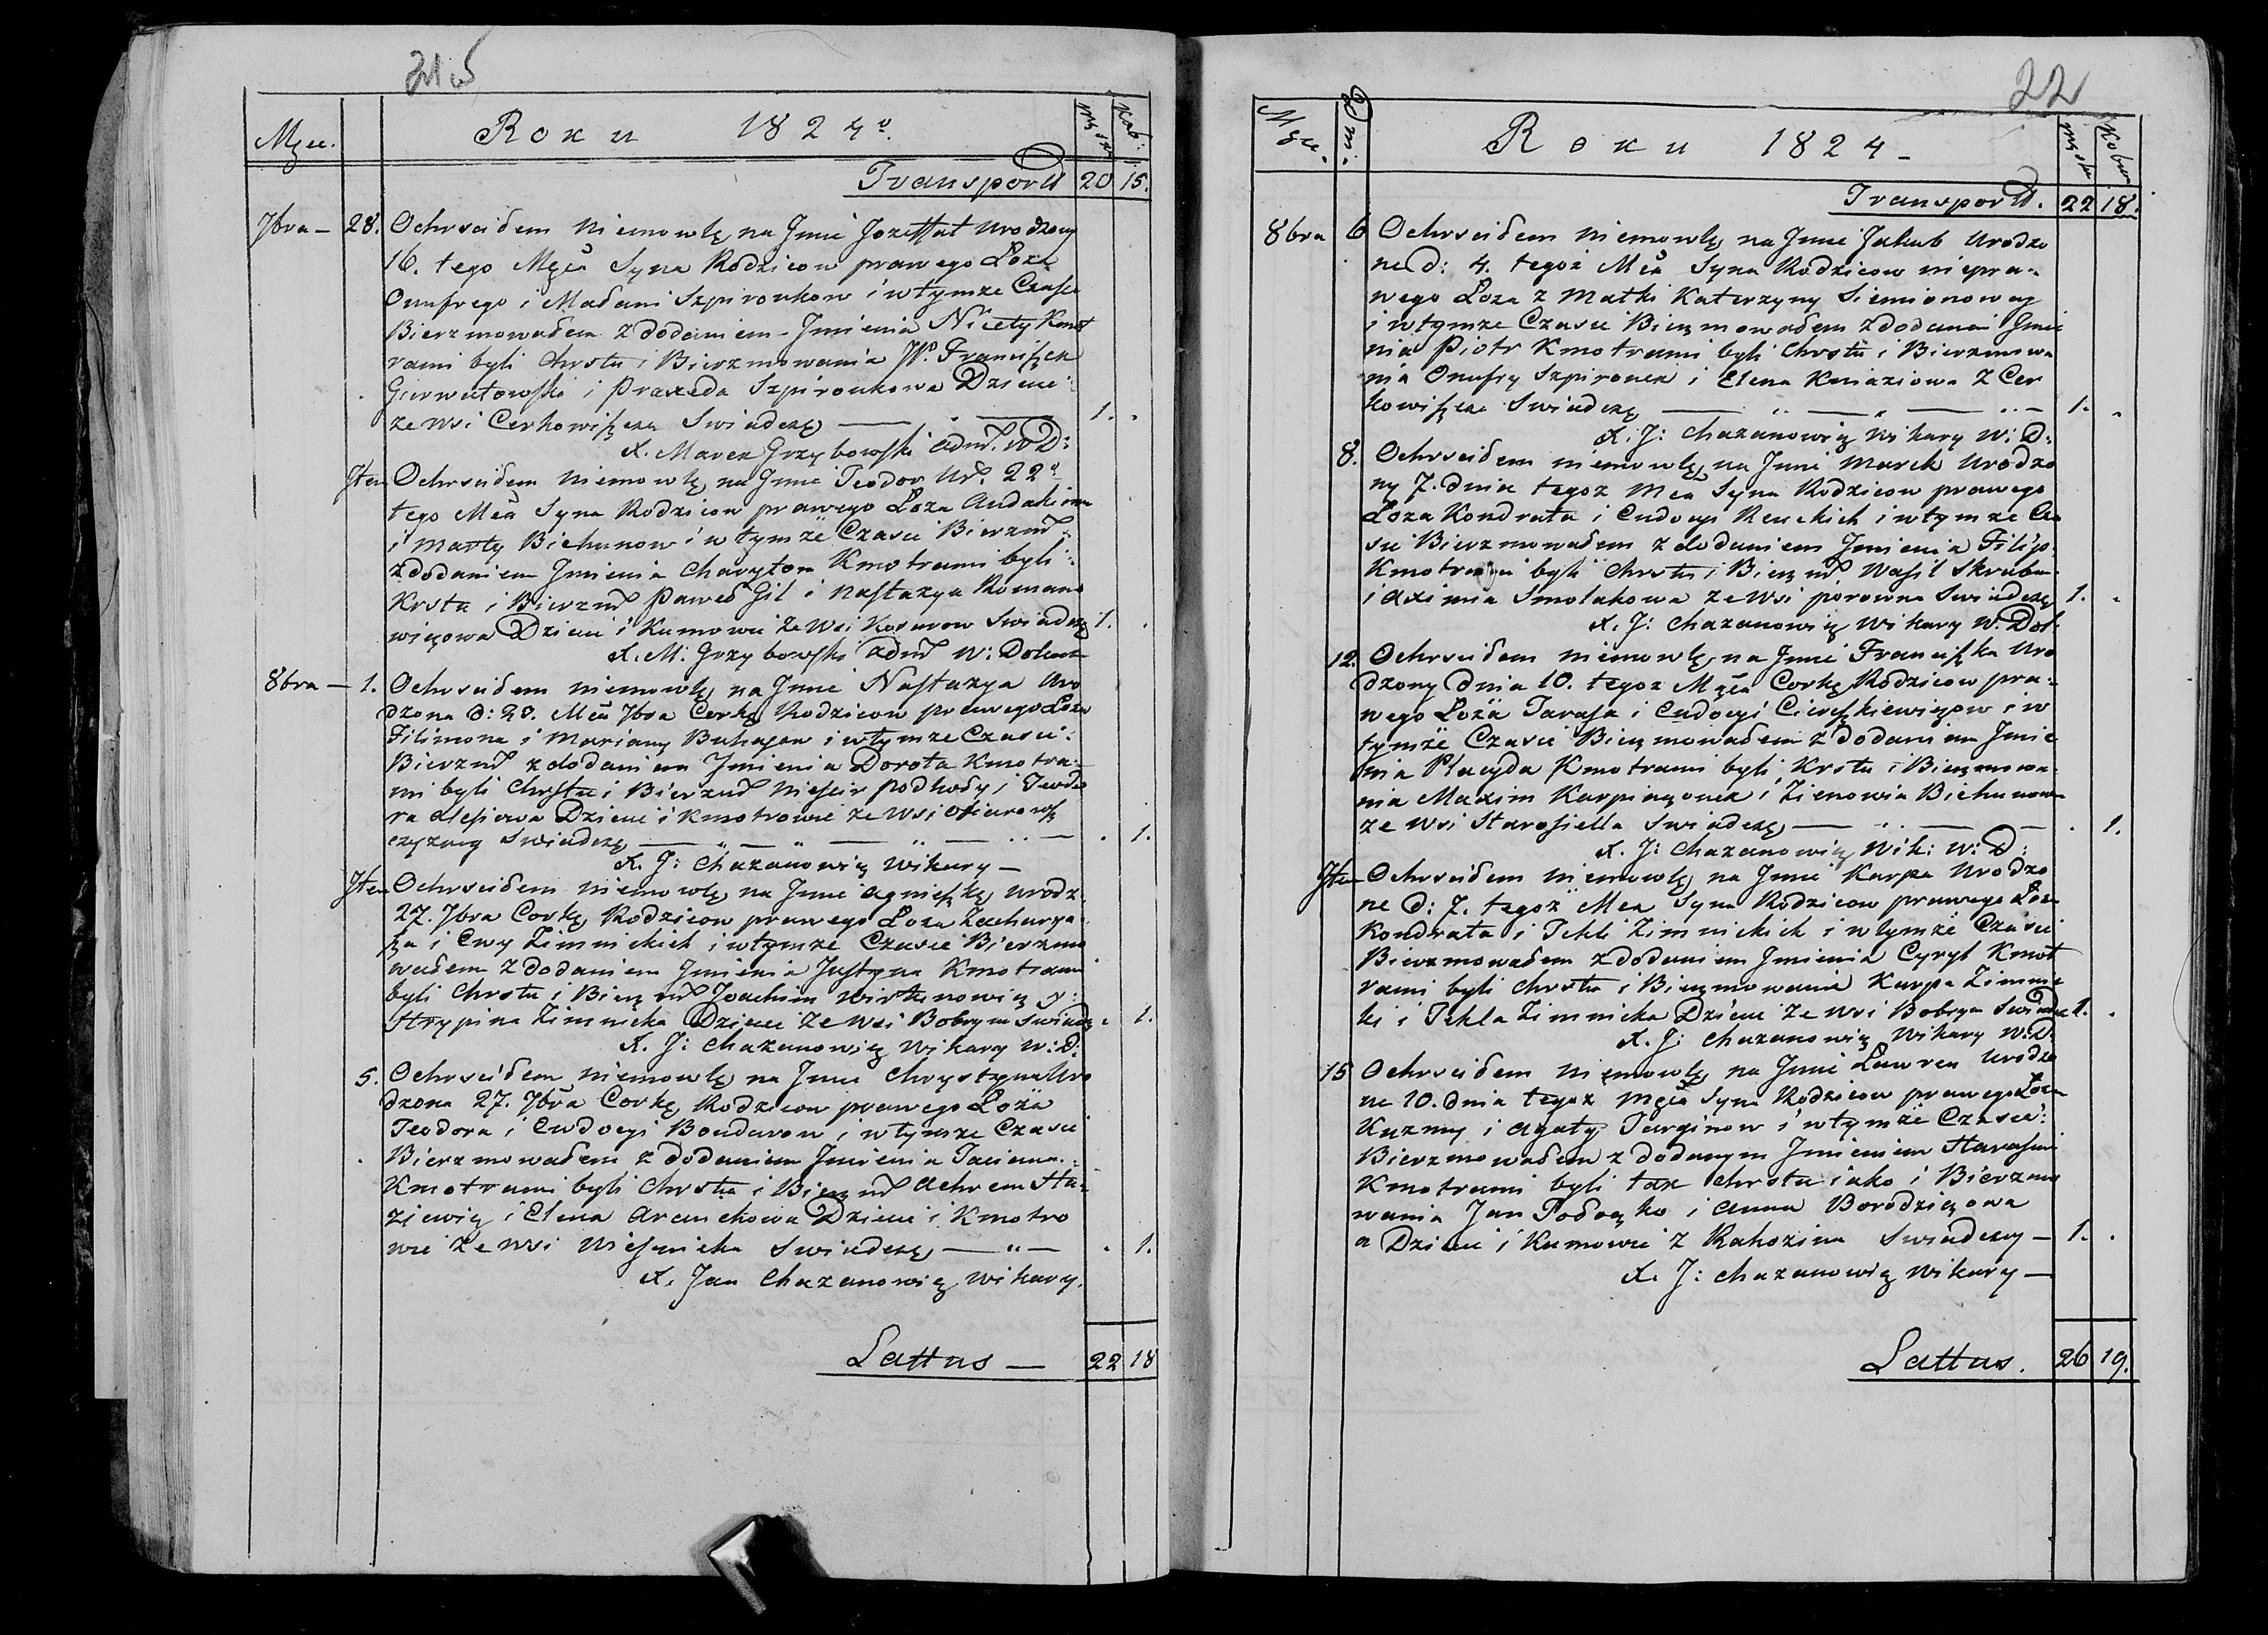 21.
Męc.
Roku 1824º.
męzka
Kob:
Transport 20 15.
7bra — 28. Ochrsciłem niemowlę na Jmie Jozeffat urodzony
16. tego Męca Syna Rodzicow prawego Łoza
Onufrego i Madani Szpironkow i w tymze Czasie
Bierzmowałem z dodaniem Jmienia Nicety Kmot
rami byli Chrstu i Bierzmowania W. Franciszek
Gierwatowski i Praxeda Szpironkowa Dzieci
ze wsi Cerkowiszcza Swiadczę — 1.
X. Marek Grzybowski adm. w D:
Jtem Ochrsciłem niemowlę na Jmie Teodor Ur. 22º
tego Męa Syna Rodzicow prawego Łoza Audakima
i Marty Bichunow i w tymże Czasie Bierzm
z dodaniem Jmienia Charyton Kmotrami byli
Krstu i Bierzm Paweł Gil i Nastazya Romano
wiczowa Dziecie i Kumowie ze wsi Kosarow Swiadczę 1.
X. M. Grzybowski adm w:
8bra — 1. Ochrsciłem niemowlę na Jmie Nastazya Uro
dzona d: 23. Męa 7bra Corkę Rodzicow prawego Łoza
Filimona i Maryany Buhajow i w tymze Czasie
Bierzm z dodaniem Jmienia Dorota Kmotra
mi byli Chrstu i Bierzm i Teodo
ra Dziecie i Kmotrowie ze wsi
czyzny Swiadczę — 1.
X. J: Chazanowicz Wikary —
Jtem Ochrsciłem niemowlę na Jmie Agnieszkę urodz.
27. 7bra Corkę Rodzicow prawego Łoza Zacharya
sza i Ewy Zimnickich i w tymże Czasie Bierzmo
wałem z dodaniem Jmienia Justyna Kmotrami
byli Chrstu i Bierzm Joachim y:
Zimnicka Dziecie ze wsi Bobryn Swiadz. 1.
X. J: Chazanowicz Wikary w: D:
5. Ochrsciłem niemowlę na Jmie Chrystyna Uro
dzona 27. 7bra Corkę Rodzicow prawego Łoża
Teodora i Ewdocyi Bondarow i w tymze Czasie
Bierzmowałem z dodaniem Jmienia Taciana.
Kmotrami byli Chrstu i Bierzm Achrem Sta
ziewicz i Elena Dziecie i Kmotro
wie ze wsi Swiadczę — „ — 1.
X. Jan Chazanowicz Wikary.
Lattus — 22 18
22
Męc.
Dni:
Roku 1824 —
męzka
Kobie
Transport. 22 18.
8bra 6 Ochrsciłem niemowlę na Jmie Jakub Urodzo
ne d: 4. tegoż Męa Syna Rodzicow niepra
wego Łoza z Matki Katerzyny Siemionoway
i w tymze Czasie Bierzmowałem z dodanien Jmie
nia Piotr Kmotrami byli Chrstu i Bierzmowa
nia Onufry Szpironek i Elena Kniaziowa z Cer
kowiszcza Swiadczę — 1.
X. J: Chazanowicz Wikary w: D:
8. Ochrsciłem niemowlę na Jmie Marek Urodzo
ny 7. dnia tegoż Męa Syna Rodzicow prawego
Łoza Kondrata i Eudocyi Reuckich i w tymze Cza
sie Bierzmowałem z dodaniem Jmienia Filip
Kmotrami byli Chrstu i Bierzm Wasil Skraba
i Axinia Smolakowa ze wsi Porowna Swiadczę 1.
X. J: Chazanowicz Wikary w. Doł.
12. Ochrsciłem niemowlę na Jmie Franciszka Uro
dzony dnia 10. tegoz Męca Corkę Rodzicow pra
wego Łoża Tarasa i Eudocyi i w
tymże Czasie Bierzmowałem z dodaniem Jmie
nia Placyda Kmotrami byli Krstu i Bierzmowa
nia Maxim Karpinczonek i Zienowia Bichunowa
ze wsi Starosiella Swiadczę — 1.
X. J: Chazanowicz Wik: w: D:
Jtem Ochrsciłem niemowlę na Jmie Karpa Urodzo
ne d: 7. tegoż Mca Syna Rodzicow prawego Łoza
Kondrata i Tekli Zimnickich i w tymże Czasie
Bierzmowałem z dodaniem Jmienia Cyryl Kmot
rami byli Chrstu i Bierzmowania Karpa Zimnic
ki i Tekla Zimnicka Dziecie ze wsi Bobryn Swiadcz 1.
X. J: Chazanowicz Wikary w: D:
15 Ochrsciłem niemowlę na Jmie Ławren Urodzo
ne 10. dnia tegoż Męca Syna Rodzicow prawego Łoza
Kuzmy i Agaty Targinow i w tymże Czasie
Bierzmowałem z dodanym Jmieniem Harasim
Kmotrami byli tak Chrstu iako i Bierzmo
wania Jan i Anna Borodziczowa
a Dziecie i Kumowie z Rahozina Swiadczy — 1.
X. J: Chazanowicz Wikary —
Lattus. 26 19.